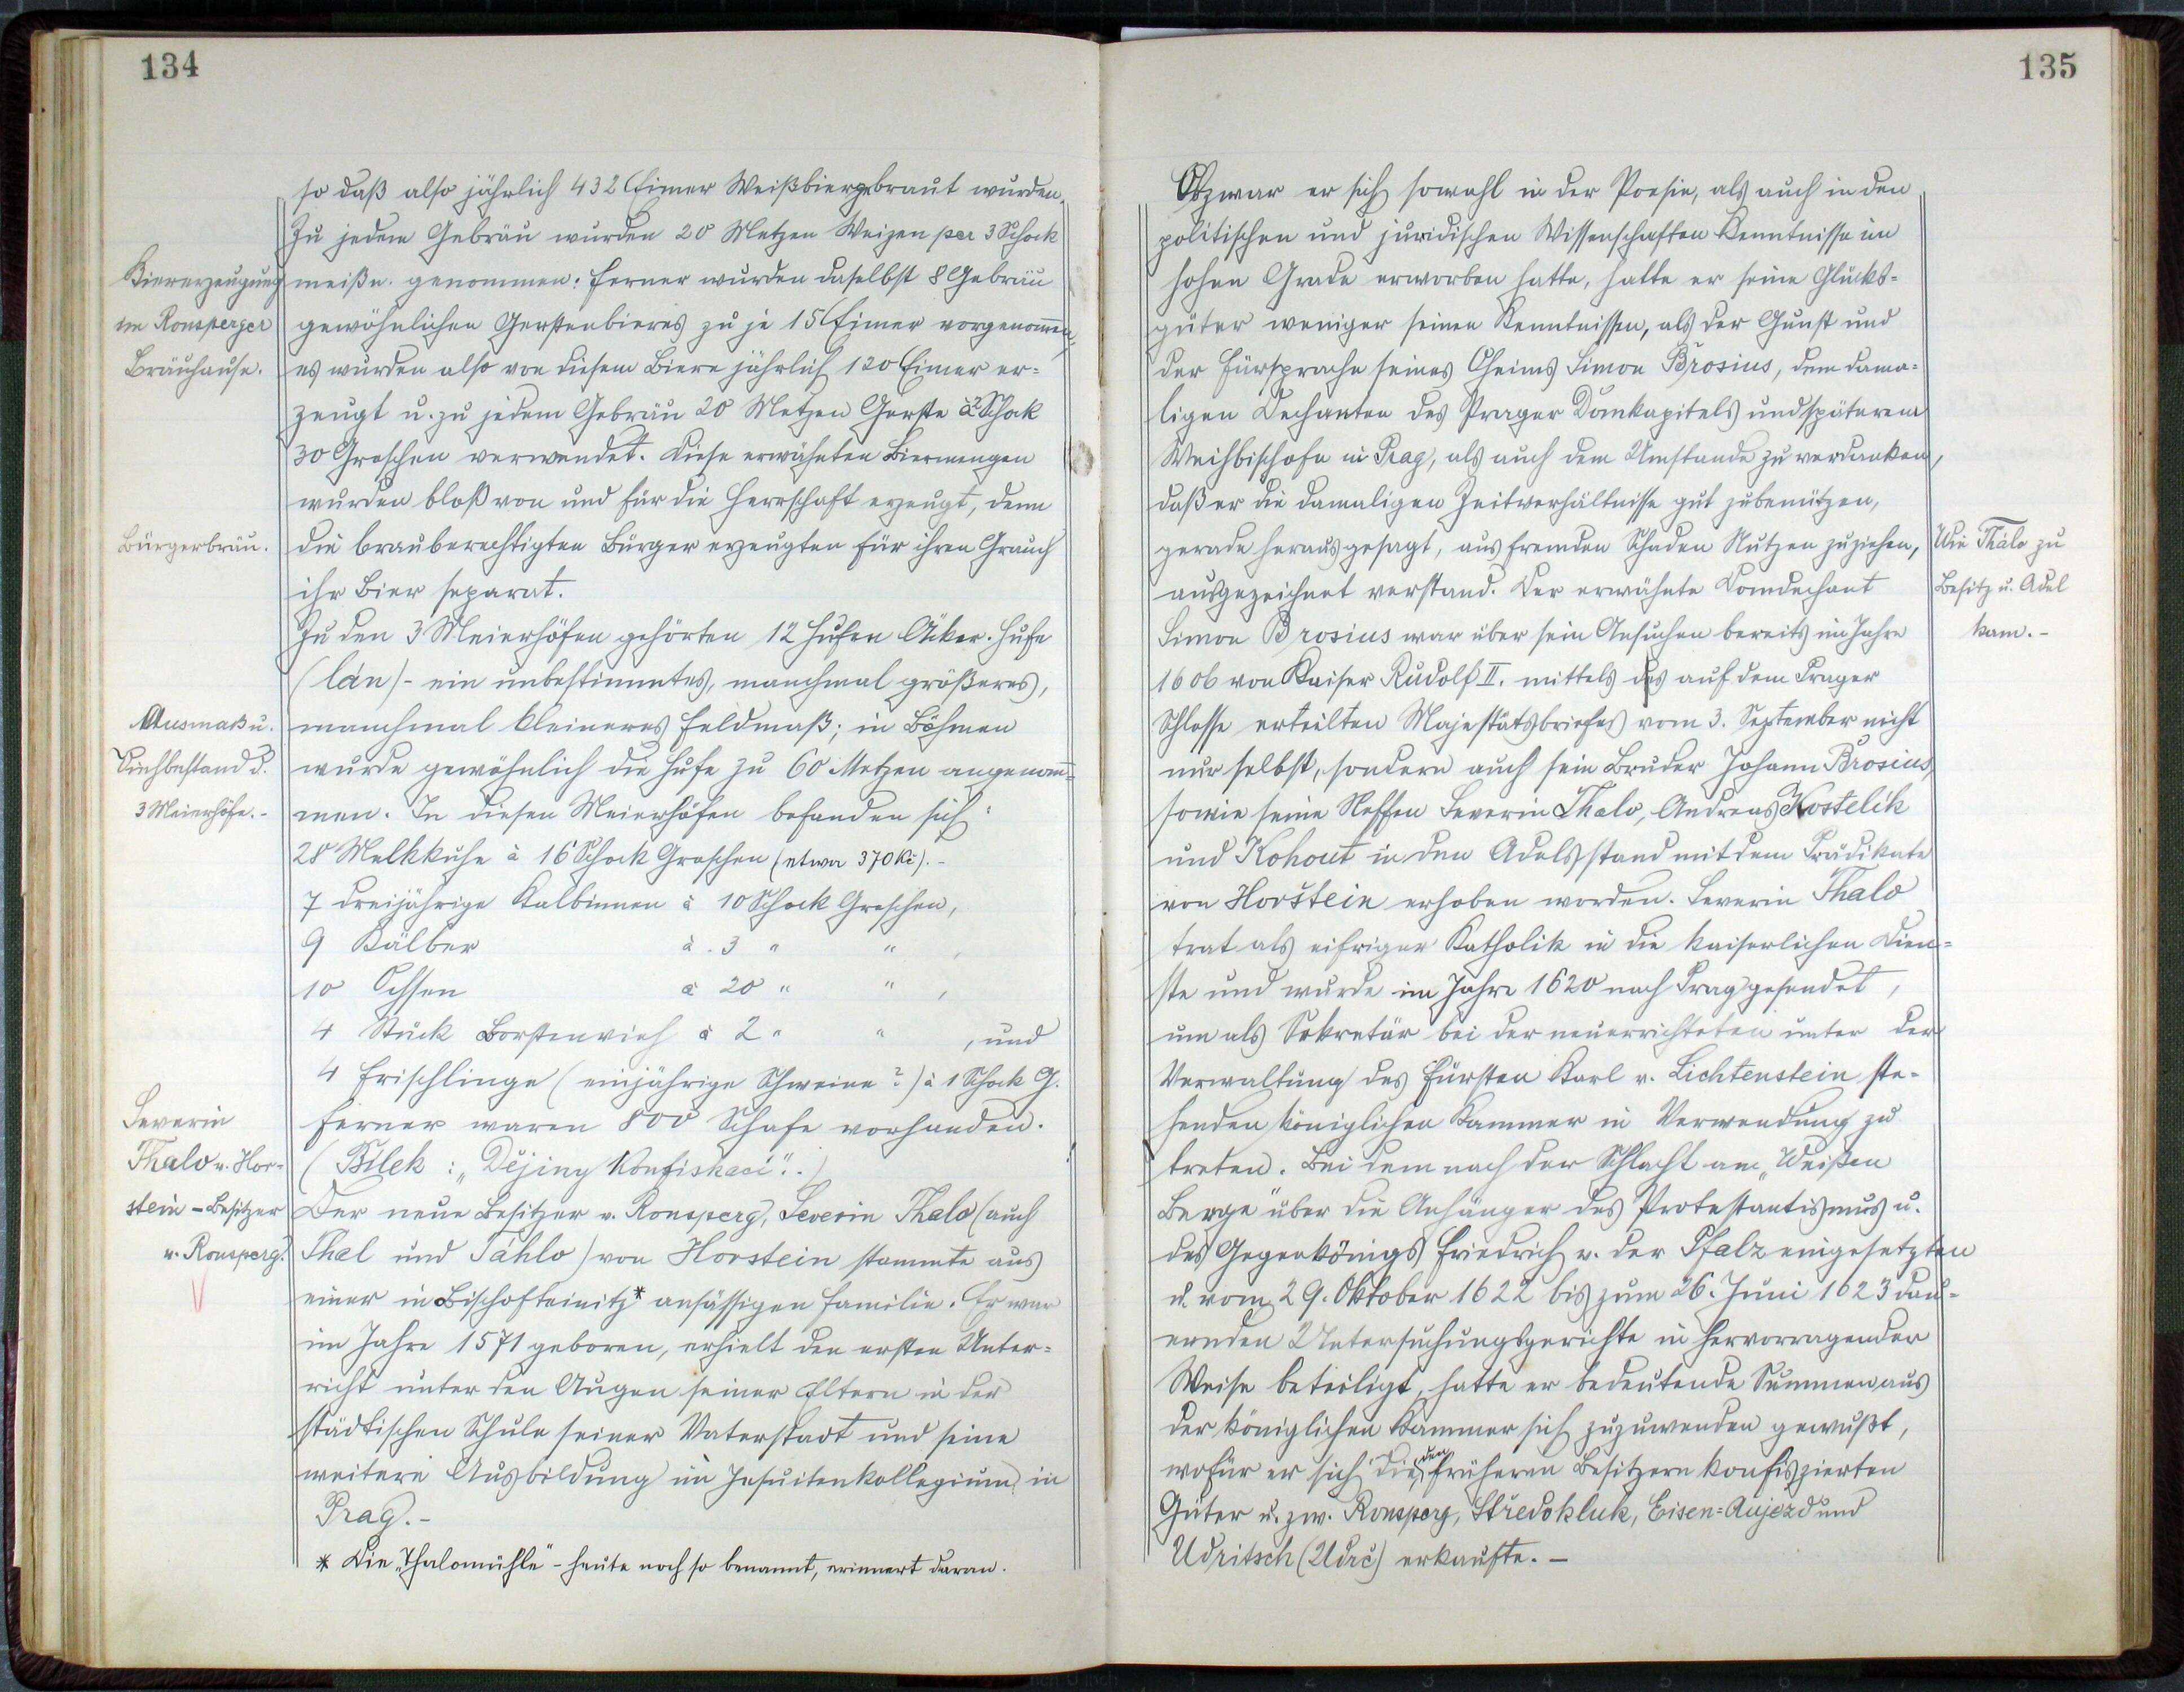 134
so daß also jährlich 432 Eimer Weißbier gebraut wurden.
Zu jedem Gebräu wurden 20 Metzen Weizen per 3 Schock
Biererzeugung
im Ronsperger
Bräuhause.
meißn. genommen: ferner wurden daselbst 8 Gebräu
gewöhnlichen Gerstenbieres zu je 15 Eimer vorgenommen,
es wurden also von diesem Biere jährlich 120 Eimer er=
zeugt u. zu jedem Gebräu 20 Metzen Gerste à 2 Schock
30 Groschen verwendet. Diese erwähnten Biermengen
wurden bloß von und für die Herrschaft erzeugt, denn
Bürgerbräu.
die brauberechtigten Bürger erzeugten für ihren
ihr Bier separat.
Zu den 3 Meierhöfen gehörten 12 Hufen Äcker. Hufe
(lán) - ein unbestimmtes, manchmal größeres,
Ausmaß u.
Viehbestand d.
3 Meierhöfe. -
manchmal kleineres Feldmaß; in Böhmen
wurde gewöhnlich die Hufe zu 60 Metzen angenom=
men. In diesen Meierhöfen befanden sich:
28 Melkkühe à 16 Schock Groschen (etwa 370 Kč). -
7 dreijährige Kalbinnen à 10 Schock Groschen,
9 Kälber à 3 " " ,
10 Ochsen à 20 " " ,
4 Stück Borstenvieh à 2 " " , und
4 Frischlinge (einjährige Schweine?) à 1 Schock G.
Ferner waren 800 Schafe vorhanden.
(Bílek: "Dějiny Konfiskací".)
Severin
Thalo v. Hor=
stein - Besitzer
v. Ronsperg.
Der neue Besitzer v. Ronsperg, Severin Thalo (auch
Thal und Táhlo) von Horstein stammte aus
einer in Bischofteinitz* ansässigen Familie. Er war
im Jahre 1571 geboren, erhielt den ersten Unter=
richt unter den Augen seiner Eltern in der
städtischen Schule seiner Vaterstadt und seine
weitere Ausbildung im Jesuitenkollegium in
Prag. -
* Die "Thalomühle" - heute noch so benannt, erinnert daran.
135
Obzwar er sich sowohl in der Poesie, als auch in den
politischen und juridischen Wissenschaften Kenntnisse im
hohen Grade erworben hatte, hatte er seine Glücks=
güter weniger seinen Kenntnissen, als der Gunst und
der Fürsprache seines Oheims Simon Brosius, dem dama=
ligen Dechanten des Prager Domkapitels und späterem
Weihbischofe in Prag, als auch dem Umstande zu verdanken,
daß er die damaligen Zeitverhältnisse gut zubenützen,
gerade heraus gesagt, aus fremden Schaden Nutzen zuziehen,
ausgezeichnet verstand. Der erwähnte Domdechant
Wie Thalo zu
Besitz u. Adel
kam. -
Simon Brosius war über sein Ansuchen bereits im Jahre
1606 von Kaiser Rudolf II. mittels des auf dem Prager
Schlosse erteilten Majestätsbriefes vom 3. September nicht
nur selbst, sondern auch sein Bruder Johann Brosius,
sowie seine Neffen Severin Thalo, Andreas Kostelik
und Kohout in den Adelsstand mit dem Prädikate
von Horštein erhoben worden. Severin Thalo
trat als eifriger Katholik in die kaiserlichen Dien=
ste und wurde im Jahre 1620 nach Prag gesendet,
um als Sekretär bei der neuerrichteten unter der
Verwaltung des Fürsten Karl v. Lichtenstein ste=
henden königlichen Kammer in Verwendung zu
treten. Bei dem nach der Schlacht am "Weißen
Berge" über die Anhänger des Protestantismus u.
des Gegenkönigs Friedrich v. der Pfalz eingesetzten
u. vom 29. Oktober 1622 bis zum 26. Juni 1623 dau=
ernden Untersuchungsgerichte in hervorragender
Weise beteiligt, hatte er bedeutende Summen aus
der königlichen Kammer sich zuzuwenden gewußt,
wofür er sich die den früheren Besitzern konfiszierten
Güter u. zw. Ronsperg, Středokluk, Eisen=Aujezd und
Udritsch (Udrč) erkaufte. -